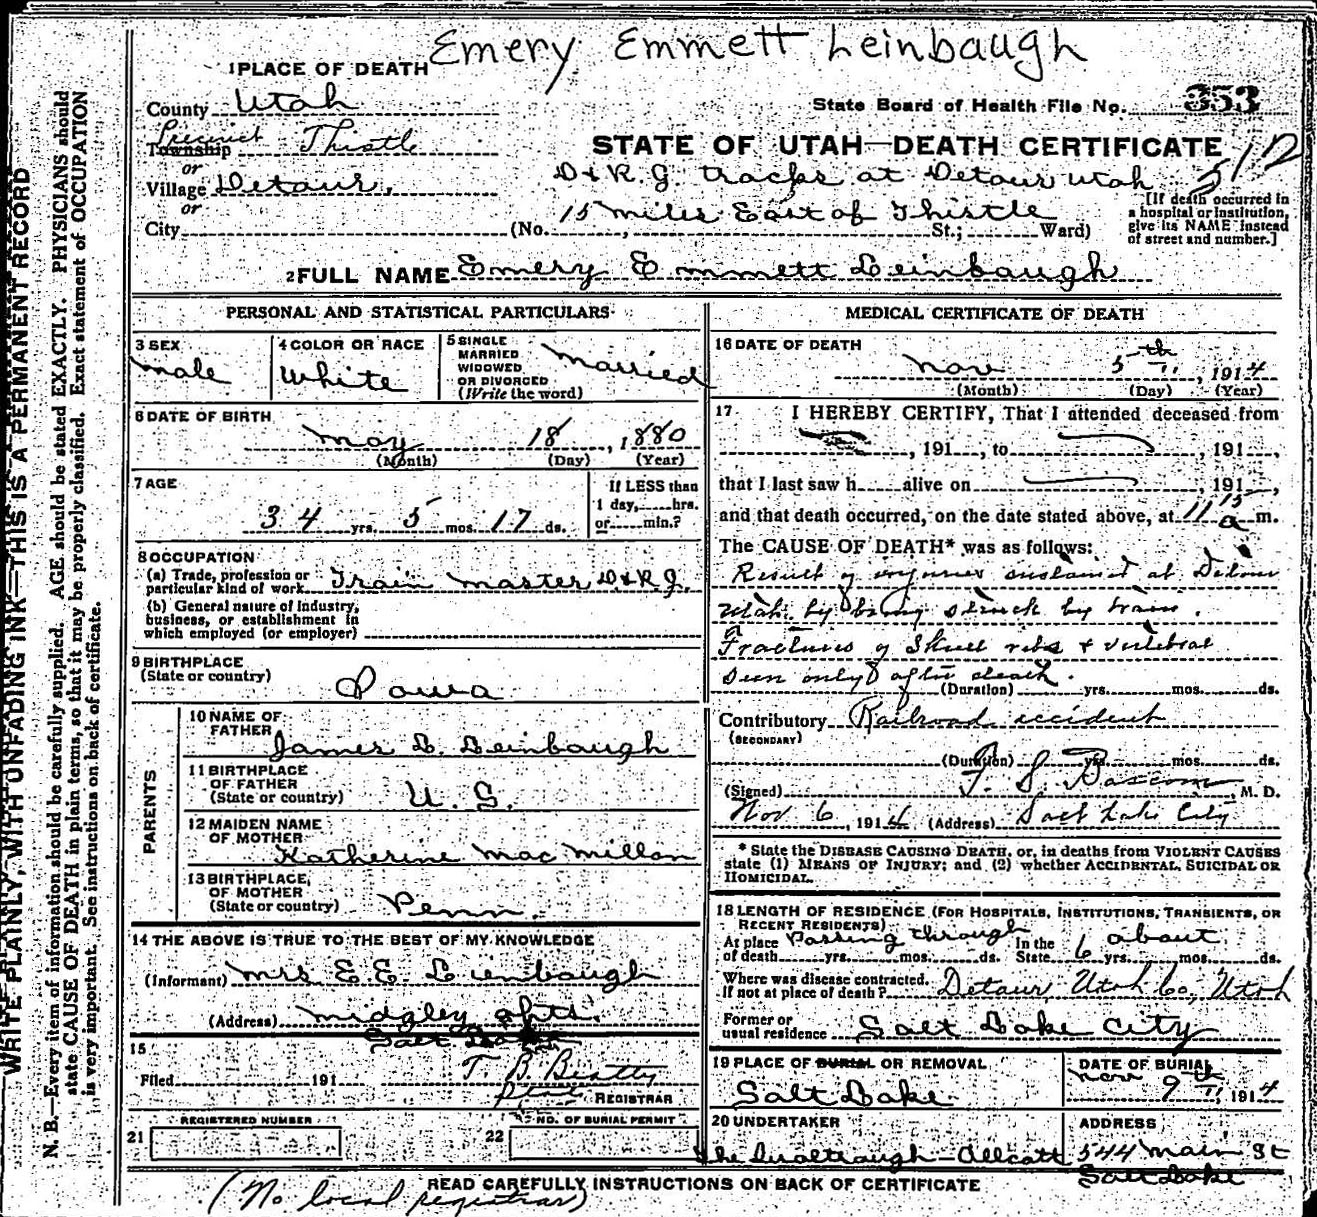 Emery Emmett Leinbaugh
1 PLACE OF DEATH
County Utah
State Board of Health File No. 353
Precinct
Township Thistle
STATE OF UTAH—DEATH CERTIFICATE
or
Village Detour,
D & R. G. tracks at Detour Utah
or
15 miles East of Thistle
City (No. , St.; Ward)
[If death occurred in
a hospital or institution,
give its NAME instead
of street and number.]
2 FULL NAME Emery Emmett Leinbaugh
PERSONAL AND STATISTICAL PARTICULARS
3 SEX
male
4 COLOR OR RACE
White
5 SINGLE
MARRIED
WIDOWED
OR DIVORCED
(Write the word)
Married
6 DATE OF BIRTH
May 18, 1880
(Month) (Day) (Year)
7 AGE
34 yrs. 5 mos. 17 ds.
If LESS than
1 day, hrs.
or min.?
8 OCCUPATION
(a) Trade, profession or
particular kind of work Train master D & R. G.
(b) General nature of Industry,
business, or establishment in
which employed (or employer)
9 BIRTHPLACE
(State or country)
Iowa
PARENTS
10 NAME OF
FATHER
James L. Leinbaugh
11 BIRTHPLACE
OF FATHER
(State or country) U. S.
12 MAIDEN NAME
OF MOTHER
Katherine MacMillan
13 BIRTHPLACE
OF MOTHER
(State or country) Penn.
14 THE ABOVE IS TRUE TO THE BEST OF MY KNOWLEDGE
(Informant) Mrs E E Leinbaugh
(Address) Midgley Apts.
Salt Lake
15
Filed 191 T. B. Beatty
REGISTRAR
REGISTERED NUMBER
21
NO. OF BURIAL PERMIT
22
MEDICAL CERTIFICATE OF DEATH
16 DATE OF DEATH
Nov 5th, 1914
(Month) (Day) (Year)
17 I HEREBY CERTIFY, That I attended deceased from
, 191 , to , 191 ,
that I last saw h alive on , 191 ,
and that death occurred, on the date stated above, at 11 15 a m.
The CAUSE OF DEATH* was as follows:
Result of injuries sustained at Detour
Utah by being struck by train.
Fractures of Skull ribs & vertebrae
Seen only after death.
(Duration) yrs. mos. ds.
Contributory Railroad accident
(SECONDARY)
(Duration) yrs. mos. ds.
(Signed) F. S. Bascom, M. D.
Nov 6, 1914 (Address) Salt Lake City
* State the DISEASE CAUSING DEATH, or, in deaths from VIOLENT CAUSES
state (1) MEANS OF INJURY; and (2) whether ACCIDENTAL, SUICIDAL OR
HOMICIDAL.
18 LENGTH OF RESIDENCE (FOR HOSPITALS, INSTITUTIONS, TRANSIENTS, OR
RECENT RESIDENTS)
Passing through about
At place
of death yrs. mos. ds. In the
State 6 yrs. mos. ds.
Where was disease contracted,
If not at place of death? Detour, Utah Co, Utah
Former or
usual residence Salt Lake City
19 PLACE OF BURIAL OR REMOVAL
Salt Lake
DATE OF BURIAL
Nov 9th, 1914
20 UNDERTAKER
ADDRESS
544 Main St
Salt Lake
READ CAREFULLY INSTRUCTIONS ON BACK OF CERTIFICATE
(No local registrar)
WRITE PLAINLY, WITH UNFADING INK—THIS IS A PERMANENT RECORD
N. B.—Every item of information should be carefully supplied. AGE should be stated EXACTLY. PHYSICIANS should
state CAUSE OF DEATH in plain terms, so that it may be properly classified. Exact statement of OCCUPATION
is very important. See instructions on back of certificate.